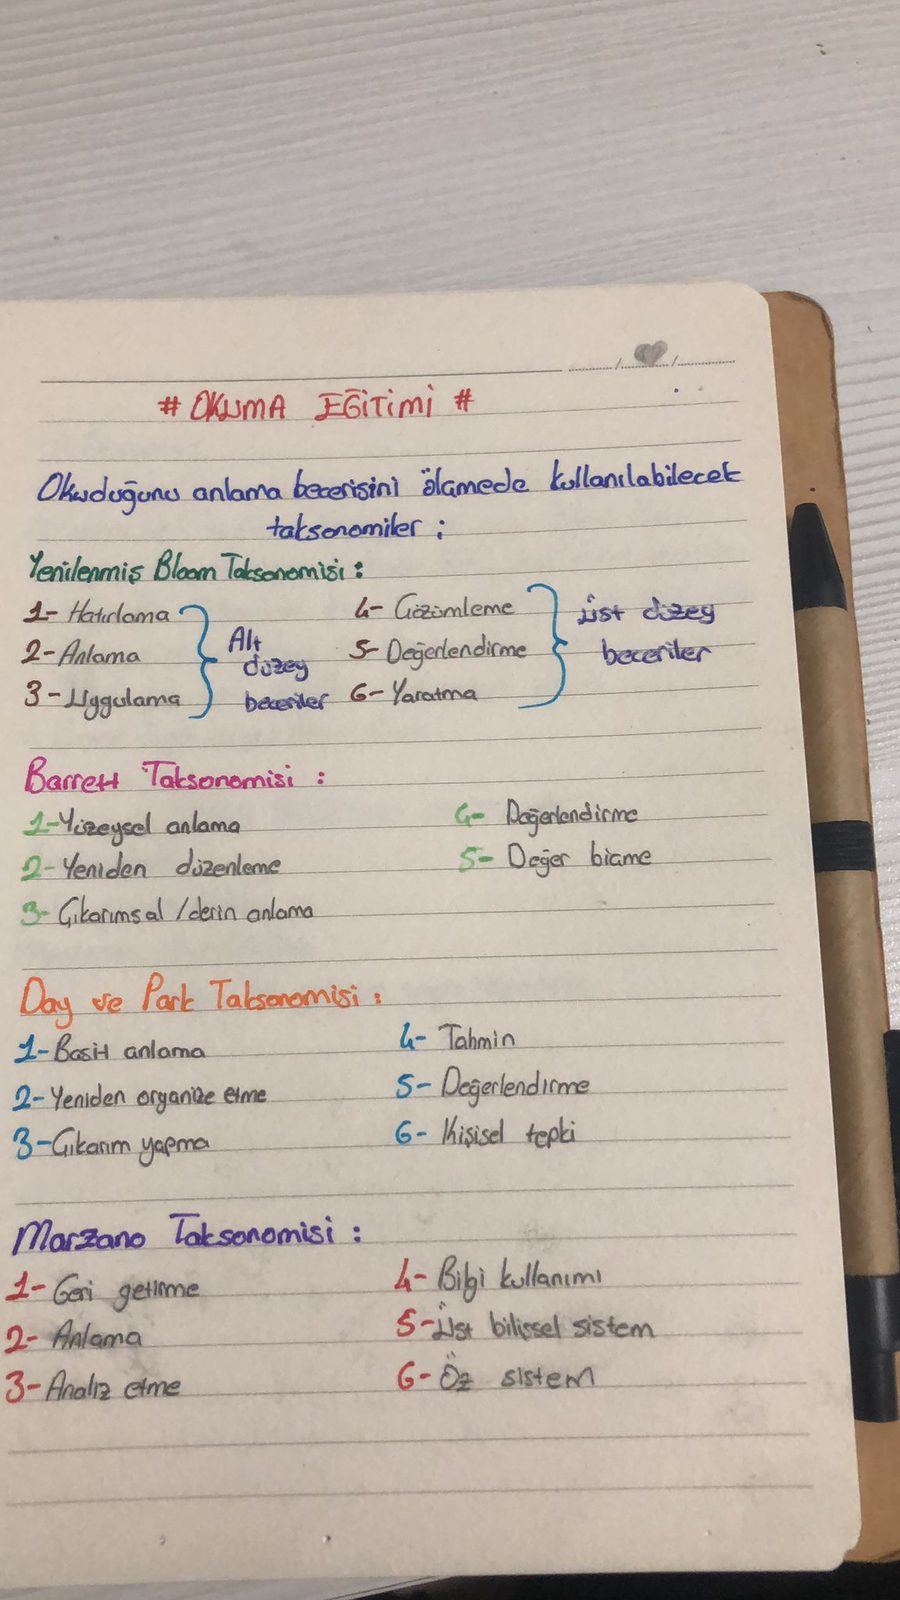 # OKUMA EĞİTİMİ #
Okuduğunu anlama becerisini ölçmede kullanılabilecek
taksonomiler :
Yenilenmiş Bloom Taksonomisi :
1- Hatırlama
2- Anlama
3- Uygulama
Alt
düzey
beceriler
4- Çözümleme
5- Değerlendirme
6- Yaratma
Üst düzey
beceriler
Barrett Taksonomisi :
1- Yüzeysel anlama
2- Yeniden düzenleme
3- Çıkarımsal / derin anlama
4- Değerlendirme
5- Değer biçme
Day ve Park Taksonomisi :
1- Basit anlama
2- Yeniden organize etme
3- Çıkarım yapma
4- Tahmin
5- Değerlendirme
6- Kişisel tepki
Marzano Taksonomisi :
1- Geri getirme
2- Anlama
3- Analiz etme
4- Bilgi kullanımı
5- Üst bilişsel sistem
6- Öz sistem